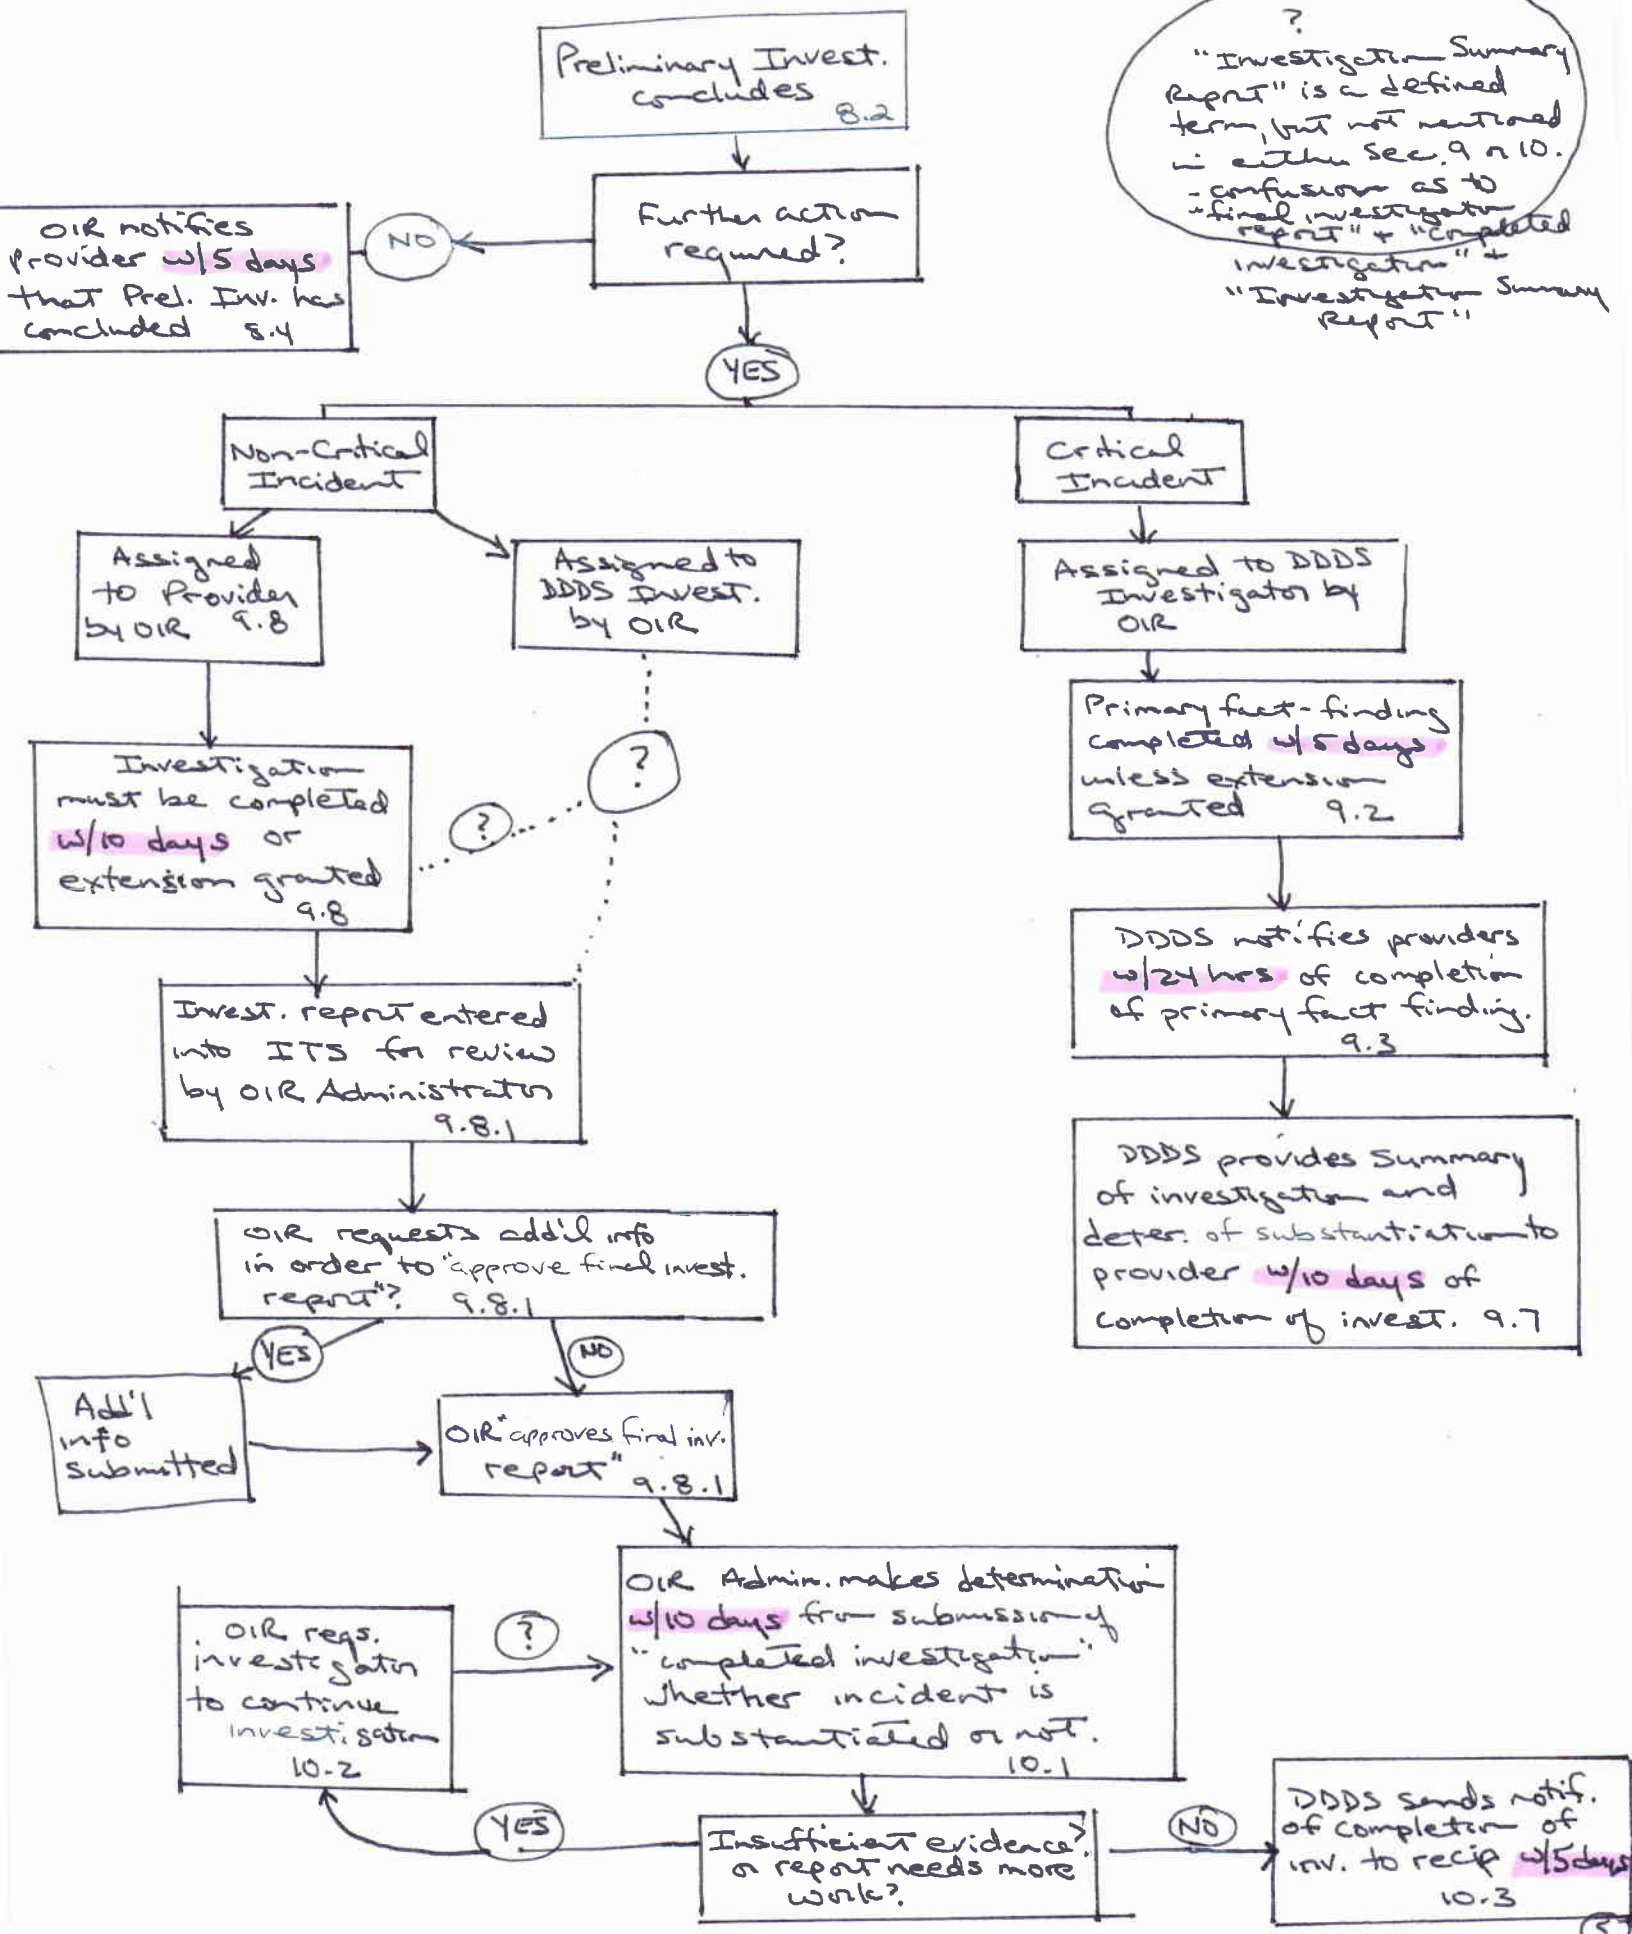 Preliminary Invest.
concludes
8.2
?
"Investigation Summary
Report" is a defined
term, but not mentioned
in either Sec. 9 or 10.
- confusion as to
"final investigation
report" + "completed
investigation" +
"Investigation Summary
Report"
Further action
required?
NO
OIR notifies
Provider w/5 days
that Prel. Inv. has
concluded 8.4
YES
Non-Critical
Incident
Critical
Incident
Assigned
to Provider
by OIR 9.8
Assigned to
DDDS Invest.
by OIR
Assigned to DDDS
Investigator by
OIR
Primary fact-finding
completed w/5 days
unless extension
granted 9.2
Investigation
must be completed
w/10 days or
extension granted
9.8
?
?
DDDS notifies providers
w/24 hrs of completion
of primary fact finding.
9.3
Invest. report entered
into ITS for review
by OIR Administrator
9.8.1
DDDS provides summary
of investigation and
deter. of substantiation to
provider w/10 days of
completion of invest. 9.7
OIR requests add'l info
in order to "approve final invest.
report"? 9.8.1
YES
NO
Add'l
info
submitted
OIR "approves final inv.
report" 9.8.1
OIR Admin. makes determination
w/10 days from submission of
"completed investigation"
whether incident is
substantiated or not.
10.1
OIR reqs.
investigator
to continue
investigation
10.2
?
Insufficient evidence?
or report needs more
work?
YES
NO
DDDS sends notif.
of completion of
inv. to recip w/5 days
10.3